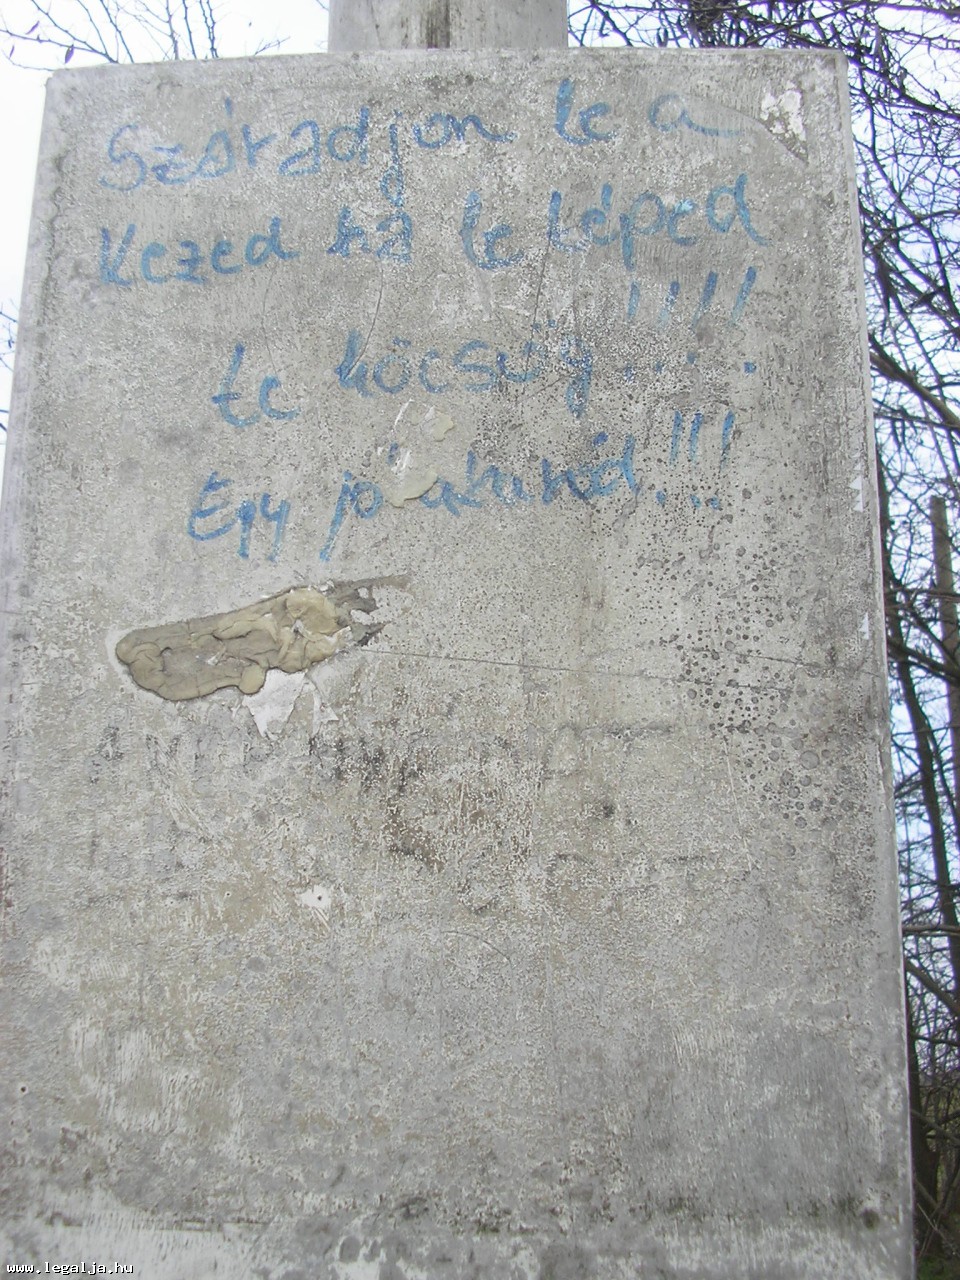 Száradjon le a
Kezed ha le téped
!!!!
te köcsög.....
Egy jó akaród...!!!
www.legalja.hu